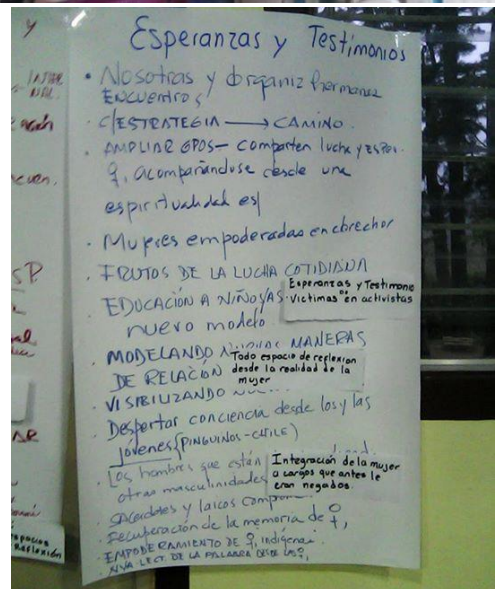 Esperanzas y Testimonios
• Nosotras y organiz hermanas
ENCUENTROS
• C/ESTRATEGIA → CAMINO.
• AMPLIAR GPOS - comparten lucha y
♀, acompañándose desde una
espiritualidad
• Mujeres empoderadas en
• FRUTOS DE LA LUCHA COTIDIANA
• EDUCACIÓN A NIÑOS/AS
nuevo modelo
Esperanzas y Testimonio
Victimas en activistas
• MODELANDO NUEVAS MANERAS
DE RELACIÓN
Todo espacio de reflexion
desde la realidad de la
mujer
• VISIBILIZANDO
• Despertar conciencia desde los y las
jóvenes (PINGUINOS-CHILE)
• Los hombres que están
otras masculinidades
Integración de la mujer
a cargos que antes le
eran negados.
• SACerdotes y laicos
• recuperación de la memoria de ♀,
• EMPODERAMIENTO DE ♀, indígena.
• NVA LECT. DE LA PALABRA DESDE LAS ♀,
y
espacios
Reflexión